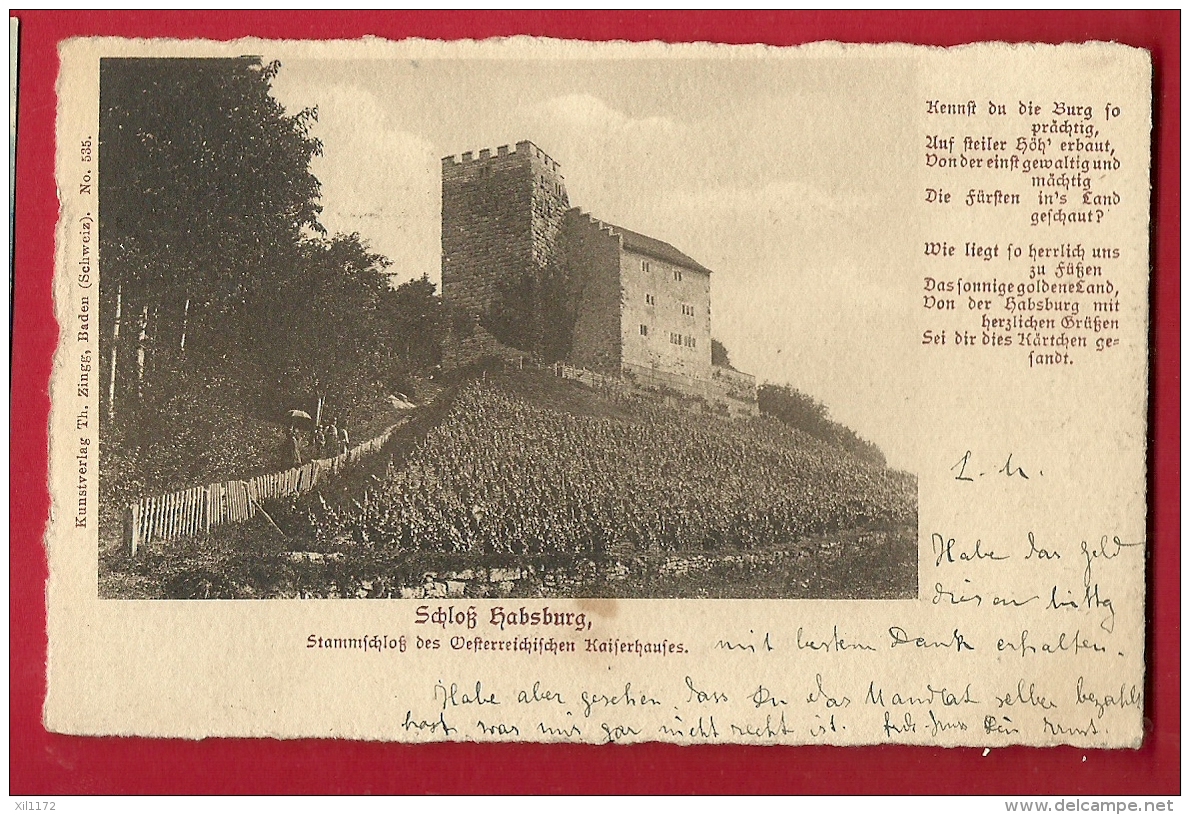 Kennst du die Burg so
prächtig,
Auf steiler Höh' erbaut,
Von der einst gewaltig und
mächtig
Die Fürsten in's Land
geschaut?
Wie liegt so herrlich uns
zu Füßen
Das sonnige goldene Land,
Von der Habsburg mit
herzlichen Grüßen
Sei dir dies Kärtchen ge=
sandt.
Kunstverlag Th. Zingg, Baden (Schweiz). No. 535.
L. M.
Habe das Geld
diesen Mittag
Schloß Habsburg,
Stammschloß des Oesterreichischen Kaiserhauses.
mit bestem Dank erhalten.
Habe aber gesehen, dass Du das Mandat selber bezahlt
hast, was mir gar nicht recht ist. Dein Ernst.
xil1172
Copyright © delcampe.net